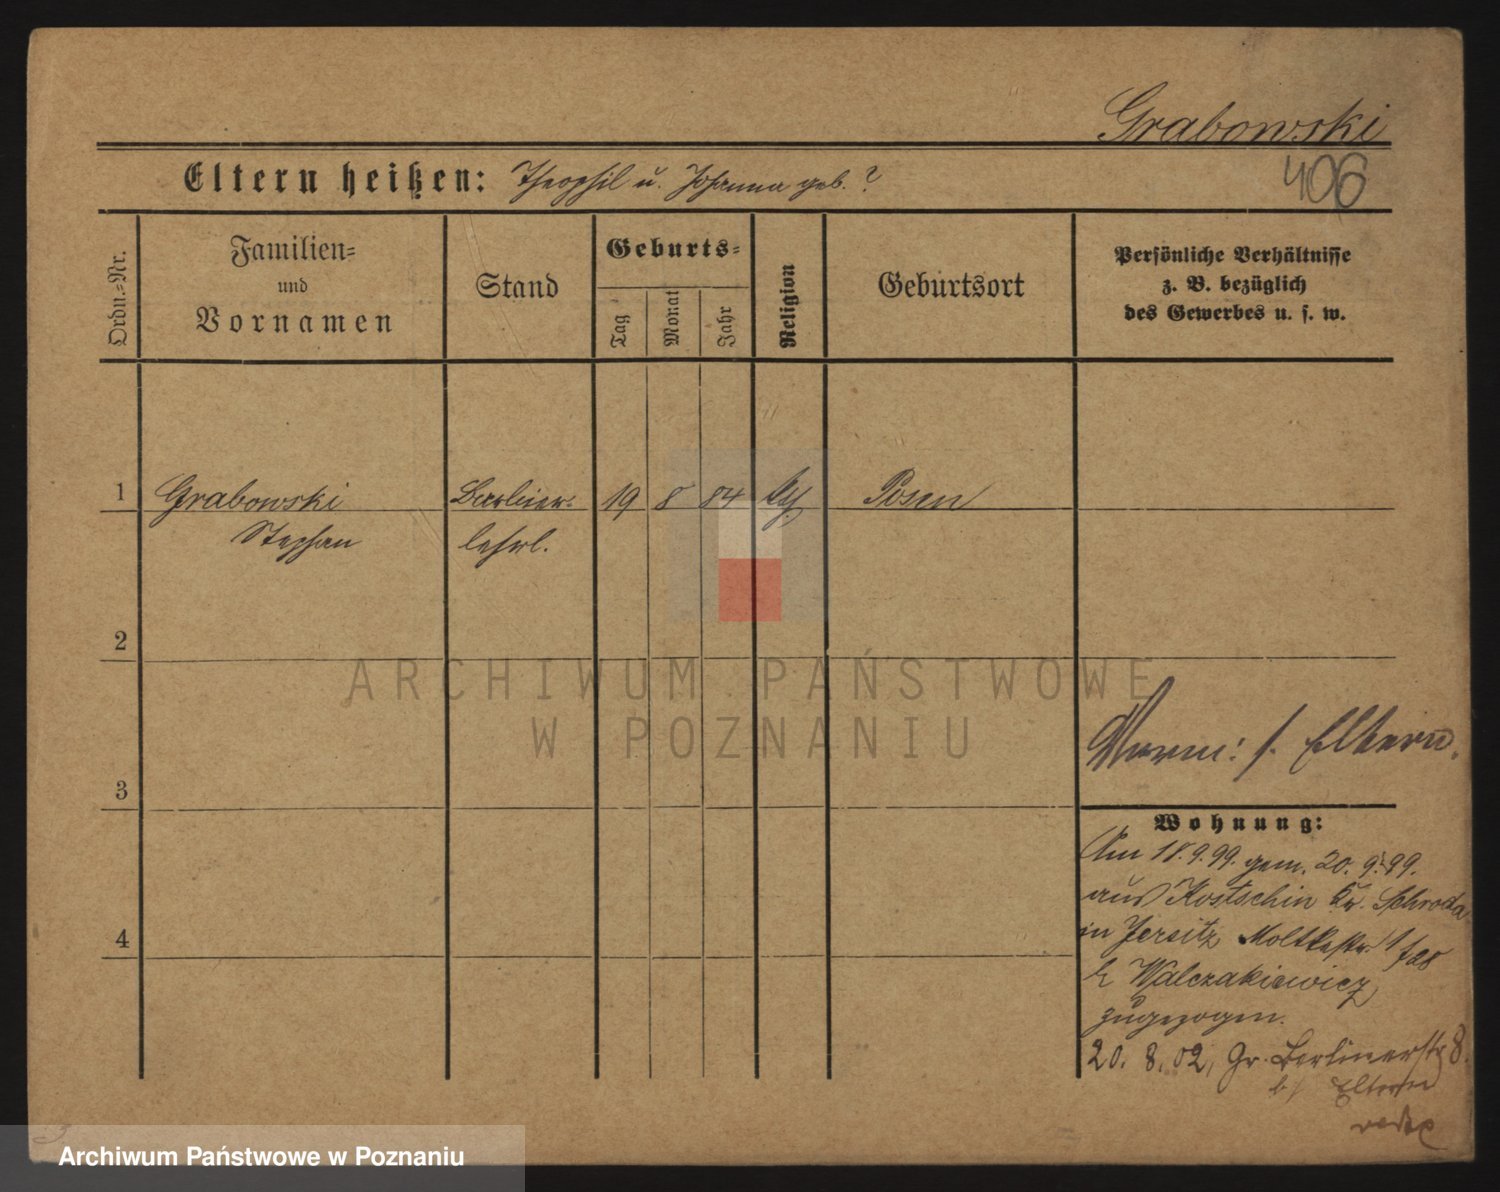 Grabowski
406
Eltern heißen: Theophil u. Johanna geb. ?
Ordn.=Nr.
Familien=
und
Vornamen
Stand
Geburts=
Tag
Monat
Jahr
Religion
Geburtsort
Persönliche Verhältnisse
z. B. bezüglich
des Gewerbes u. s. w.
1 Grabowski Barbier= 19 8 84 kth Posen
Stephan lehrl.
2
ARCHIWUM PAŃSTWOWE
W POZNANIU
s. Eltern.
3
Wohnung:
Am 18.9.99. gem. 20.9.99.
aus Kostschin Kr. Schroda
in Jersitz Moltkestr.
b Walczakiewicz
zugezogen.
4
20. 8. 02, Gr. Berlinerstr 8.
b/ Eltern
Archiwum Państwowe w Poznaniu